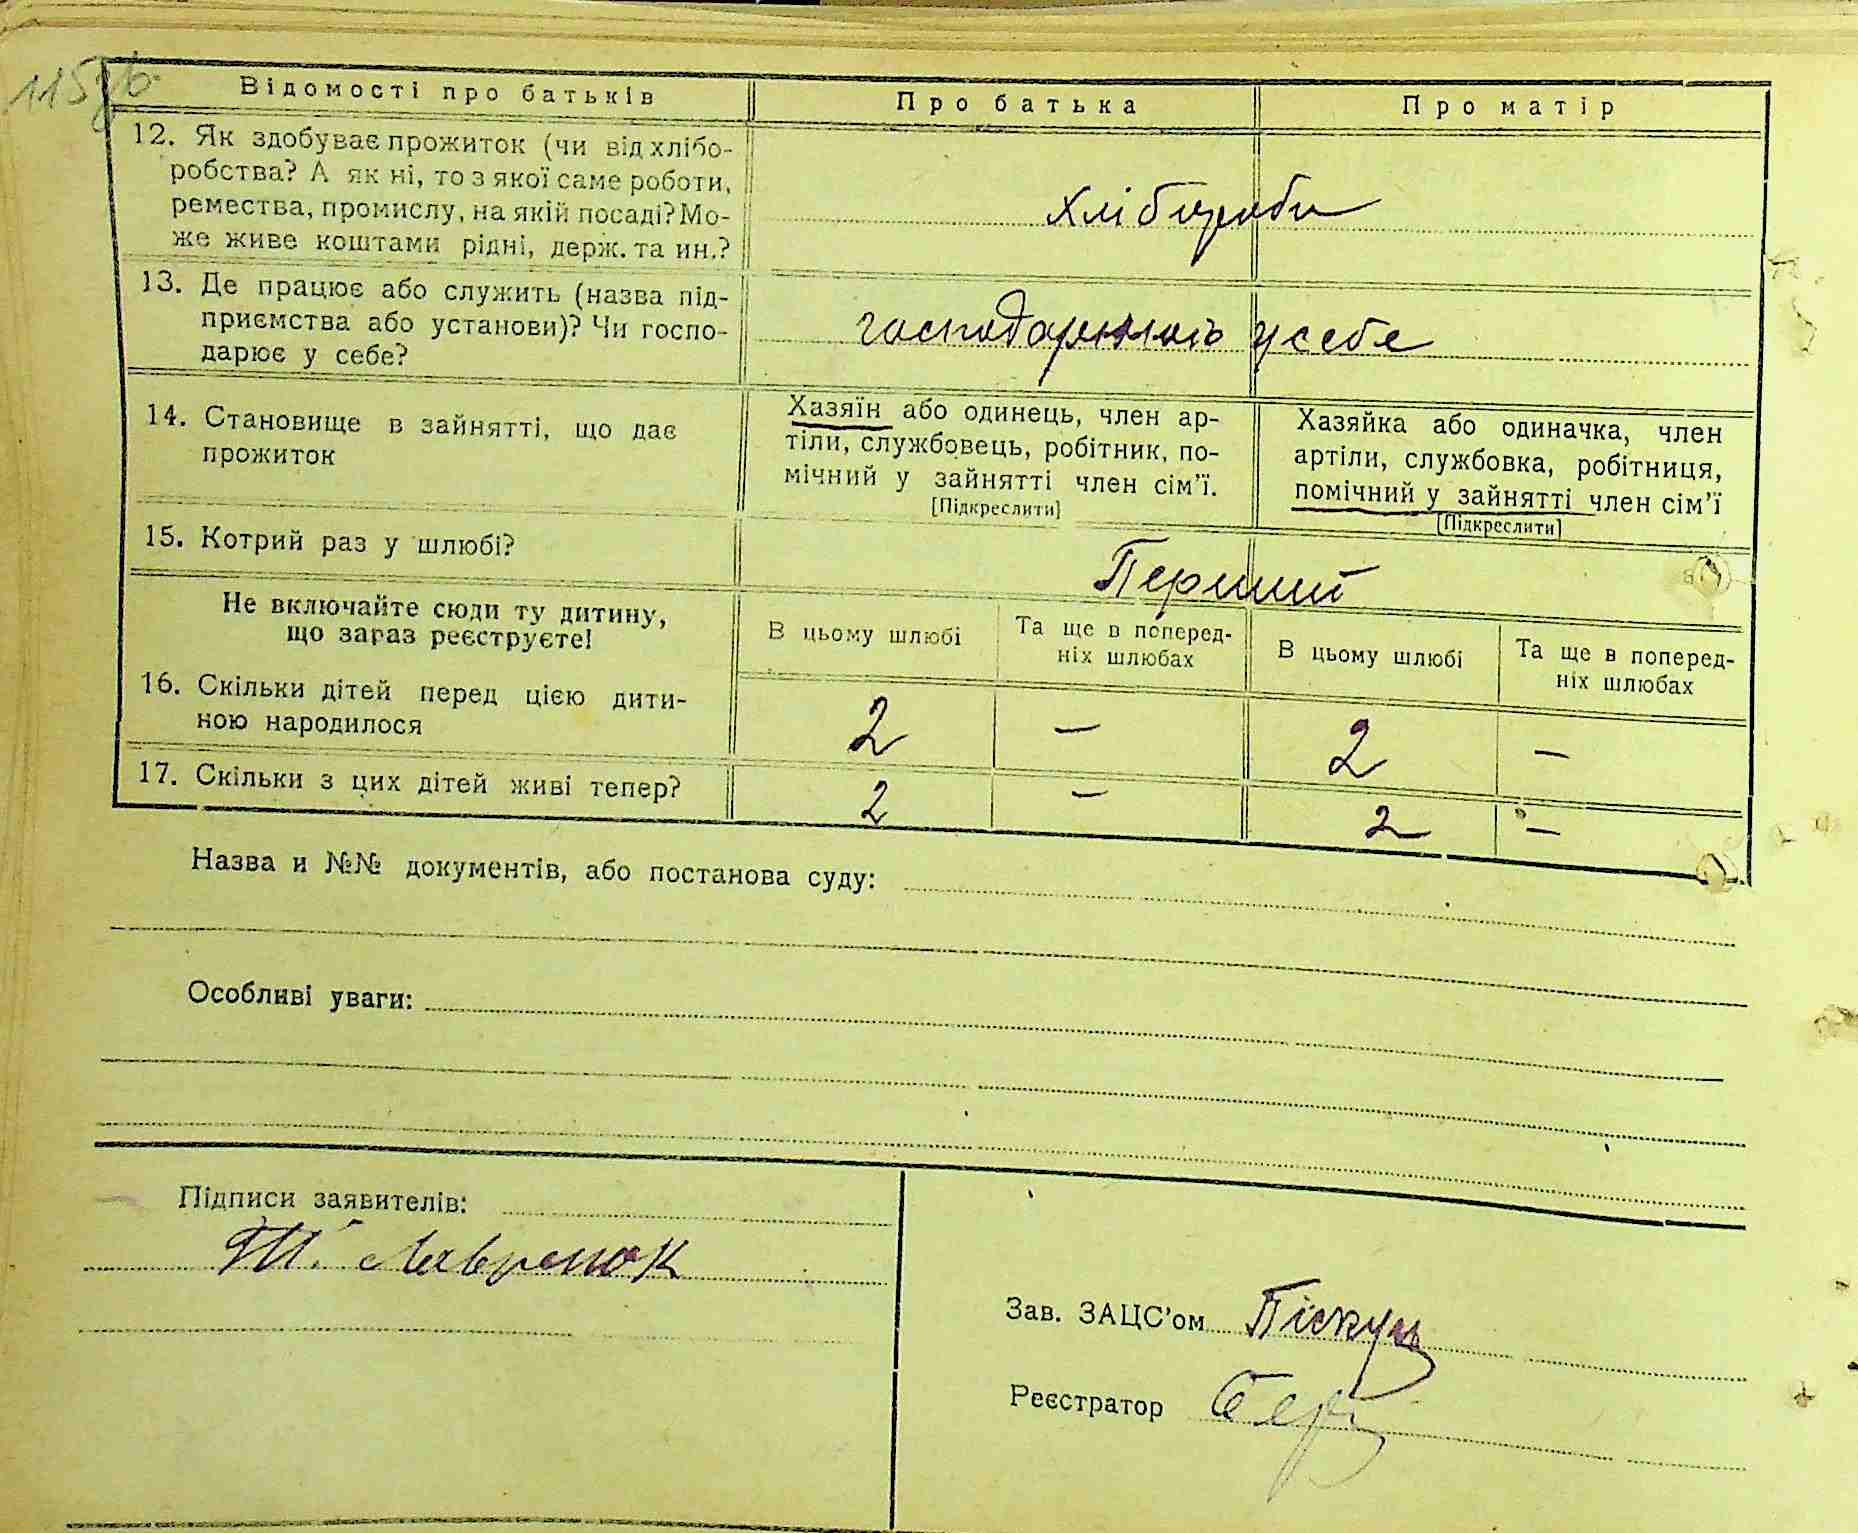 115зв.
Відомості про батьків
Про батька
Про матір
12. Як здобуває прожиток (чи від хлібо-
робства? А як ні, то з якої саме роботи,
ремества, промислу, на якій посаді? Мо-
же живе коштами рідні, держ. та ин.?
хлібороби
13. Де працює або служить (назва під-
приємства або установи)? Чи госпо-
дарює у себе?
господарюють у себе
14. Становище в зайнятті, що дає
прожиток
Хазяїн або одинець, член ар-
тіли, службовець, робітник, по-
мічний у зайнятті член сім'ї.
[Підкреслити]
Хазяйка або одиначка, член
артіли, службовка, робітниця,
помічний у зайнятті член сім'ї
[Підкреслити]
15. Котрий раз у шлюбі?
Перший
Не включайте сюди ту дитину,
що зараз реєструєте!
В цьому шлюбі
Та ще в поперед-
ніх шлюбах
В цьому шлюбі
Та ще в поперед-
ніх шлюбах
16. Скільки дітей перед цією дити-
ною народилося
2 — 2 —
17. Скільки з цих дітей живі тепер?
2 — 2 —
Назва и №№ документів, або постанова суду:
Особливі уваги:
Підписи заявителів:
Лавренюк
Зав. ЗАЦС'ом Піскун
Реєстратор